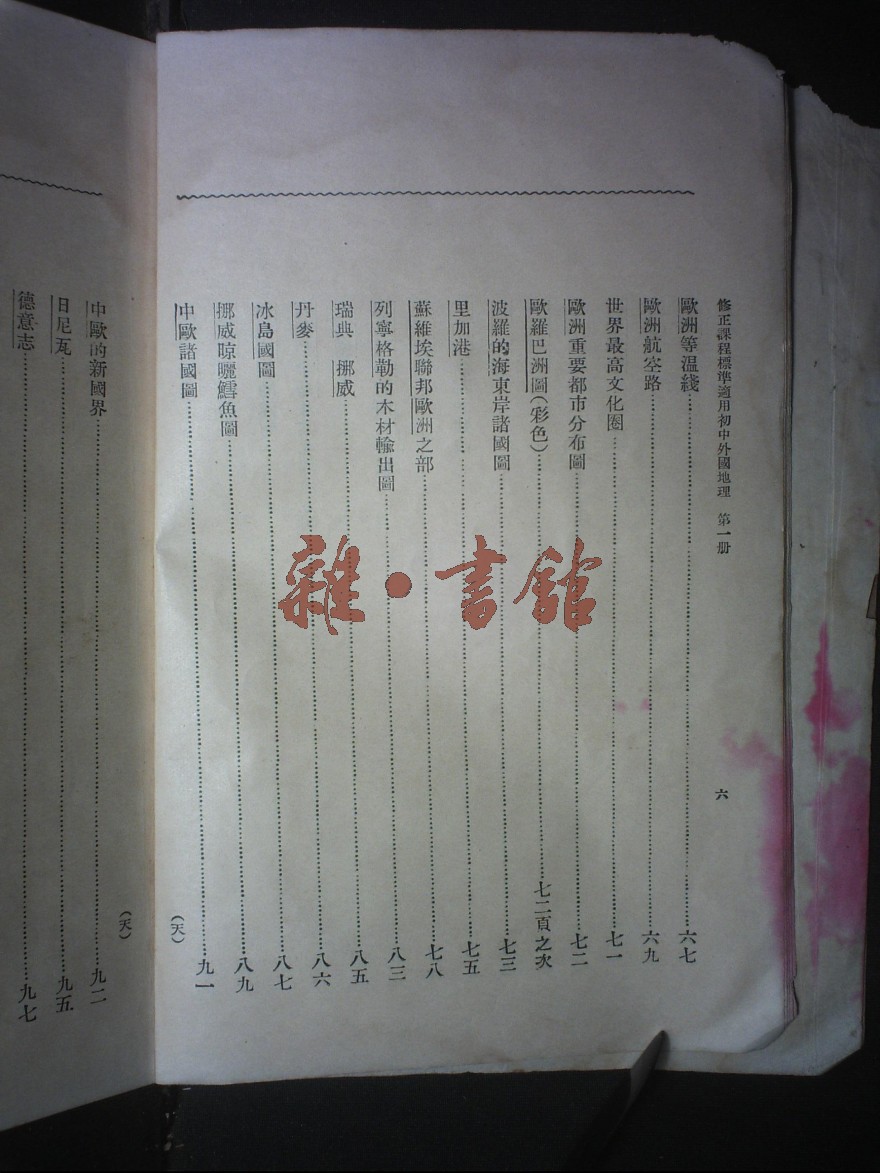 修正課程標準適用初中外國地理　第一册
六
歐洲等温綫……六七
歐洲航空路……六九
世界最高文化圈……七一
歐洲重要都市分布圖……七二
歐羅巴洲圖(彩色)……七二頁之次
波羅的海東岸諸國圖……七三
里加港……七五
蘇維埃聯邦歐洲之部……七八
列寧格勒的木材輸出圖……八三
瑞典　挪威……八五
丹麥……八六
冰島國圖……八七
挪威晾曬鱈魚圖……八九
中歐諸國圖……九一
(天)
(天)
中歐的新國界……九二
日尼瓦……九五
德意志……九七
雜·書館